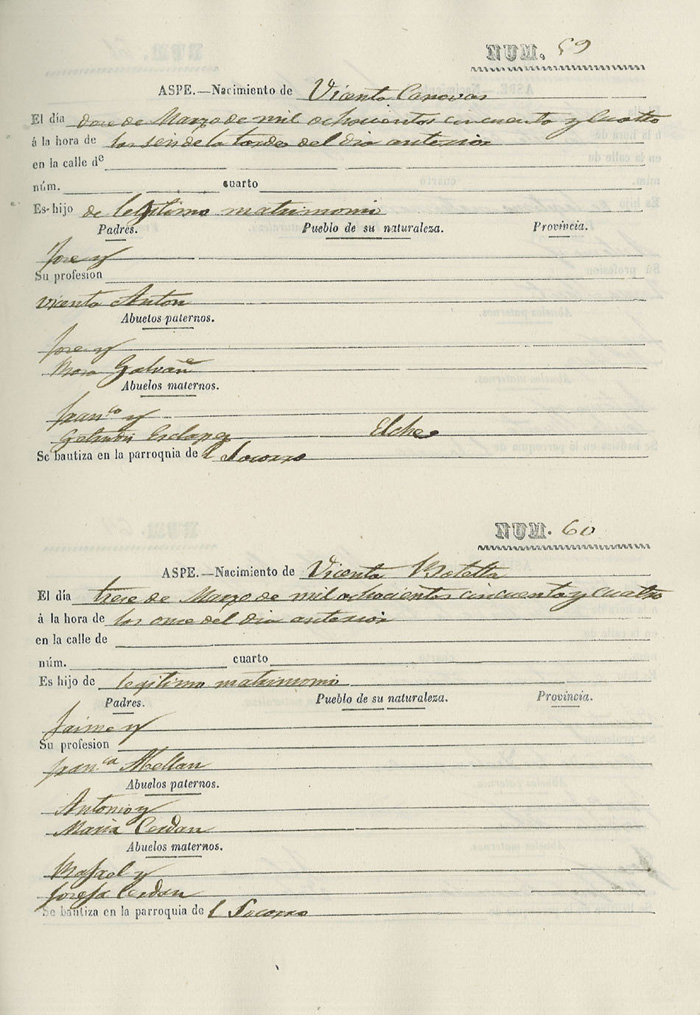 NUM. 59
ASPE.—Nacimiento de Vicenta Canovas
El día doce de Marzo de mil ochocientos cincuenta y Cuatro
á la hora de las seis de la tarde del dia anterior
en la calle de
núm. cuarto
Es hijo de legitimo matrimonio
Padres. Pueblo de su naturaleza. Provincia.
Jose y
Su profesion
Vicenta Anton
Abuelos paternos.
Jose y
Rosa Galvañ
Abuelos maternos.
Fran.co y
Esclapez Elche
Se bautiza en la parroquia de l Socorro
NUM. 60
ASPE.—Nacimiento de Vicenta Botella
El día trece de Marzo de mil ochocientos cincuenta y cuatro
á la hora de las once del dia anterior
en la calle de
núm. cuarto
Es hijo de legitimo matrimonio
Padres. Pueblo de su naturaleza. Provincia.
Jaime y
Su profesion
Fran.ca Abellan
Abuelos paternos.
Antonio y
Maria Cerdan
Abuelos maternos.
Rafael y
Josefa Cerdan
Se bautiza en la parroquia de l Socorro